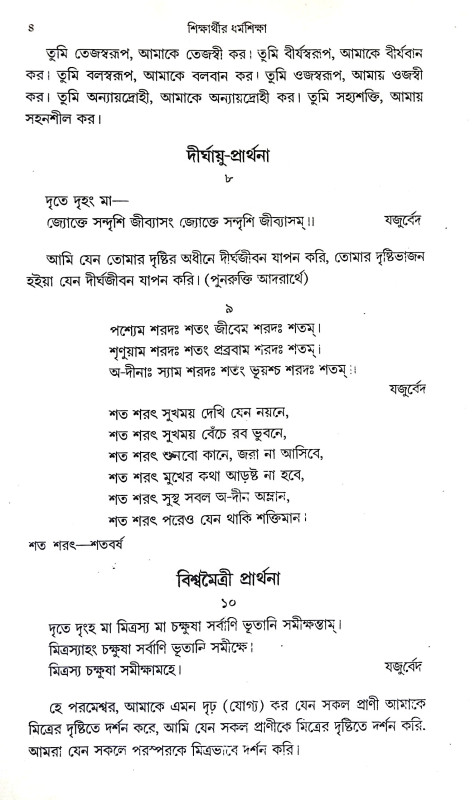 ৪
শিক্ষার্থীর ধর্মশিক্ষা
তুমি তেজস্বরূপ, আমাকে তেজস্বী কর। তুমি বীর্যস্বরূপ, আমাকে বীর্যবান
কর। তুমি বলস্বরূপ, আমাকে বলবান কর। তুমি ওজস্বরূপ, আমায় ওজস্বী
কর। তুমি অন্যায়দ্রোহী, আমাকে অন্যায়দ্রোহী কর। তুমি সহ্যশক্তি, আমায়
সহনশীল কর।
দীর্ঘায়ু-প্রার্থনা
৮
দৃতে দৃহং মা—
জ্যোক্তে সন্দৃশি জীব্যাসং জ্যোক্তে সন্দৃশি জীব্যাসম্।। যজুর্বেদ
আমি যেন তোমার দৃষ্টির অধীনে দীর্ঘজীবন যাপন করি, তোমার দৃষ্টিভাজন
হইয়া যেন দীর্ঘজীবন যাপন করি। (পুনরুক্তি আদরার্থে)
৯
পশ্যেম শরদঃ শতং জীবেম শরদঃ শতম্।
শৃণুয়াম শরদঃ শতং প্রব্রবাম শরদঃ শতম্।
অ-দীনাঃ স্যাম শরদঃ শতং ভূয়শ্চ শরদঃ শতম্।।
যজুর্বেদ
শত শরৎ সুখময় দেখি যেন নয়নে,
শত শরৎ সুখময় বেঁচে রব ভুবনে,
শত শরৎ শুনবো কানে, জরা না আসিবে,
শত শরৎ মুখের কথা আড়ষ্ট না হবে,
শত শরৎ সুস্থ সবল অ-দীন অম্লান,
শত শরৎ পরেও যেন থাকি শক্তিমান।
শত শরৎ—শতবর্ষ
বিশ্বমৈত্রী প্রার্থনা
১০
দৃতে দৃংহ মা মিত্রস্য মা চক্ষুষা সর্বাণি ভূতানি সমীক্ষন্তাম্।
মিত্রস্যাহং চক্ষুষা সর্বাণি ভূতানি সমীক্ষে।
মিত্রস্য চক্ষুষা সমীক্ষামহে। যজুর্বেদ
হে পরমেশ্বর, আমাকে এমন দৃঢ় (যোগ্য) কর যেন সকল প্রাণী আমাকে
মিত্রের দৃষ্টিতে দর্শন করে, আমি যেন সকল প্রাণীকে মিত্রের দৃষ্টিতে দর্শন করি.
আমরা যেন সকলে পরস্পরকে মিত্রভাবে দর্শন করি।